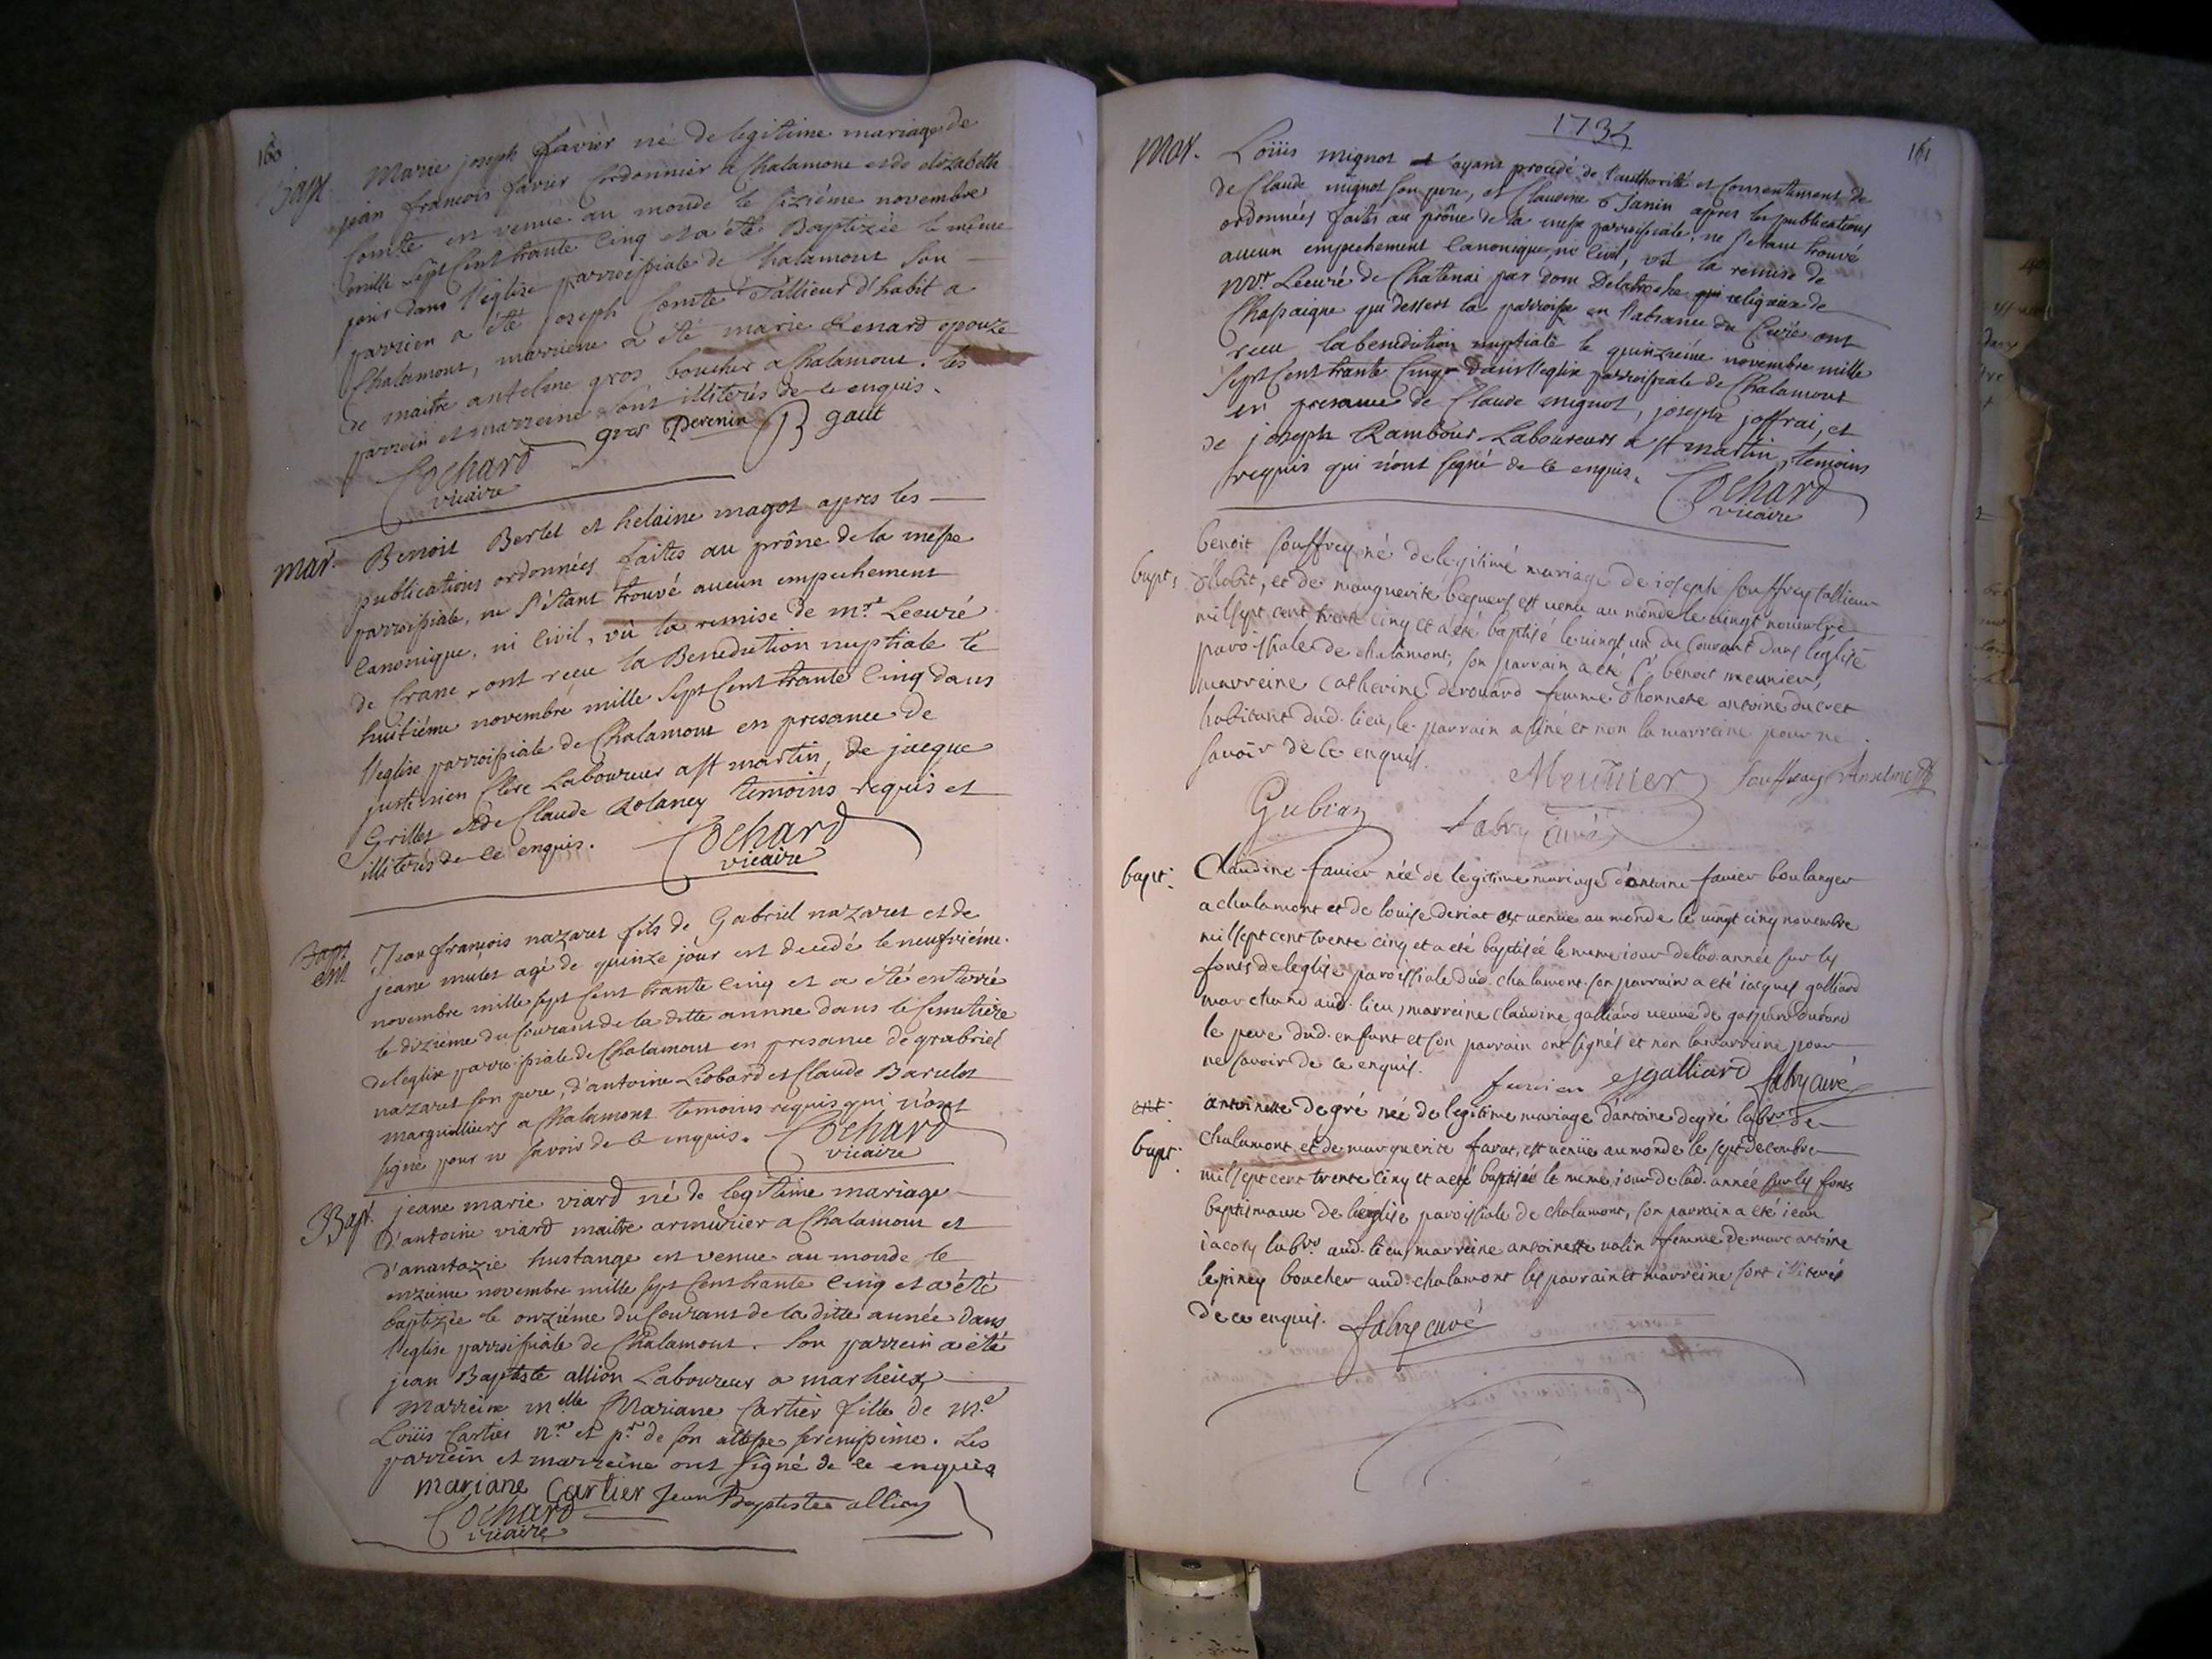 160
Bapt. Marie joseph favier né de legitime mariage de
jean francois favier Cordonnier a Chalamont et de elizabeth
Comte est venue au monde le sizième novembre
mille sept Cent trante Cinq et a été Baptizée le même
jour dans l'église parroissiale de Chalamont son
parrien a été joseph Comte Tallieur d'habit a
Chalamont, marriene a été marie Renard epouze
de maitre antelme gros boucher a Chalamont. les
parrein et marreine sont illiterés de ce enquis.
gros Perenin B gaut
Cochard
vicaire
mar. Benoit Berlet et helaine magot apres les
publications ordonnées faites au prône de la messe
parroissiale, ne s'étant trouvé aucun empechement
Canonique, ni Civil, vû la remise de mr. Lecuré
de Crane, ont recu la Benediction nuptiale le
huitiéme novembre mille sept Cent trante Cinq dans
l'eglise parroissiale de Chalamont en presance de
justinien Clere Laboureur a st martin, de jacque
Grillet et de Claude Rolaney temoins requis et
illiterés de ce enquis.
Cochard
vicaire
Bapt
ent Jean francois nazaret fils de Gabriel nazaret et de
jeane mulet agé de quinze jour est decedé le neufviéme
novembre mille sept Cent trante Cinq et a été enterré
le diziéme du Courant de la ditte annne dans le Cemetiere
de l'eglise parroissiale de Chalamont en presance de grabriel
nazaret son pere, d'antoine Liobard et Claude Barulot
marguilliers a Chalamont temoins requis qui n'ont
signé pour ne savoir de ce enquis.
Cochard
vicaire
Bapt. jeane marie viard né de legitime mariage
d'antoine viard maitre armurier a Chalamont et
d'anastazie hustange est venue au monde le
onzieme novembre mille sept Cent trante Cinq et a été
baptizée le onziéme du Courant de la ditte année dans
l'eglise parroissiale de Chalamont. Son parrein a été
jean Baptiste allion Laboureur a marlieux
marreine melle Mariane Cartier fille de me
Loüis Cartier nre et pr de son altesse serenissime. Les
parrein et marreine ont signé de ce enquis
mariane Cartier Jean Baptiste allion
Cochard
vicaire
1735
161
mar. Loüis mignot ayant procedé de l'authorité et Consentement de
de Claude mignot son pere, et Claudine Janin apres les publications
ordonnées faites au prône de la messe parroissiale, ne s'étant trouvé
aucun empechement Canonique, ni Civil, vû la remise de
mr. Lecuré de Chatenai par dom Delatroche religieux de
Chassaigne qui dessert la parroisse en l'absance du Curé ont
recu la benediction nuptiale le quinziéme novembre mille
sept Cent trante Cinq dans l'eglise parroissiale de Chalamont
en presance de Claude mignot, joseph joffrai, et
de joseph Rambour Laboureurs a st martin, temoins
requis qui n'ont signé de ce enquis.
Cochard
vicaire
bapt. benoit souffrey né de legitimé mariage de ioseph souffrey tallieur
d'habit, et de marguerite est venu au monde le vingt novembre
mil sept cent trente cinq et a été baptisé le vingt un du courant dans l'église
paroissiale de chalamont, son parrain a été Sr benoit meunier,
marreine Catherine derouard femme d'honnete antoine ducret
habitant dud. lieu, le parrain a siné et non la marreine pour ne
savoir de ce enquis.
Meunier souffray Anselme
Gubian fabry curé
bapt. Claudine favier née de legitime mariage d'antoine favier boulanger
a chalamont et de louise deriat est venue au monde le vingt cinq novembre
mil sept cent trente cinq et a été baptisée le meme iour de lad. année sur les
fonts de leglise paroissiale dud. chalamont. son parrain a été iacques galliard
marchand aud. lieu, marreine claudine galliard veuve de gaspard durand
le pere dud. enfant et son parrain ont signés et non la marreine pour
ne savoir de ce enquis.
favier galliard fabry curé
ent.
bapt. antoinette degré née de legitime mariage d'antoine degré labr. de
chalamont et de marguerite farat, est venüe au monde le sept decembre
mil sept cent trente cinq et a été baptisée le meme iour de lad. année sur les fonts
baptismaux de l'eglise paroissiale de chalamont, son parrain a été iean
iacoly labr. aud. lieu, marreine antoinette valin femme de marc antoine
lepiney boucher aud. chalamont les parrain et marreine sont illiterés
de ce enquis. fabry curé